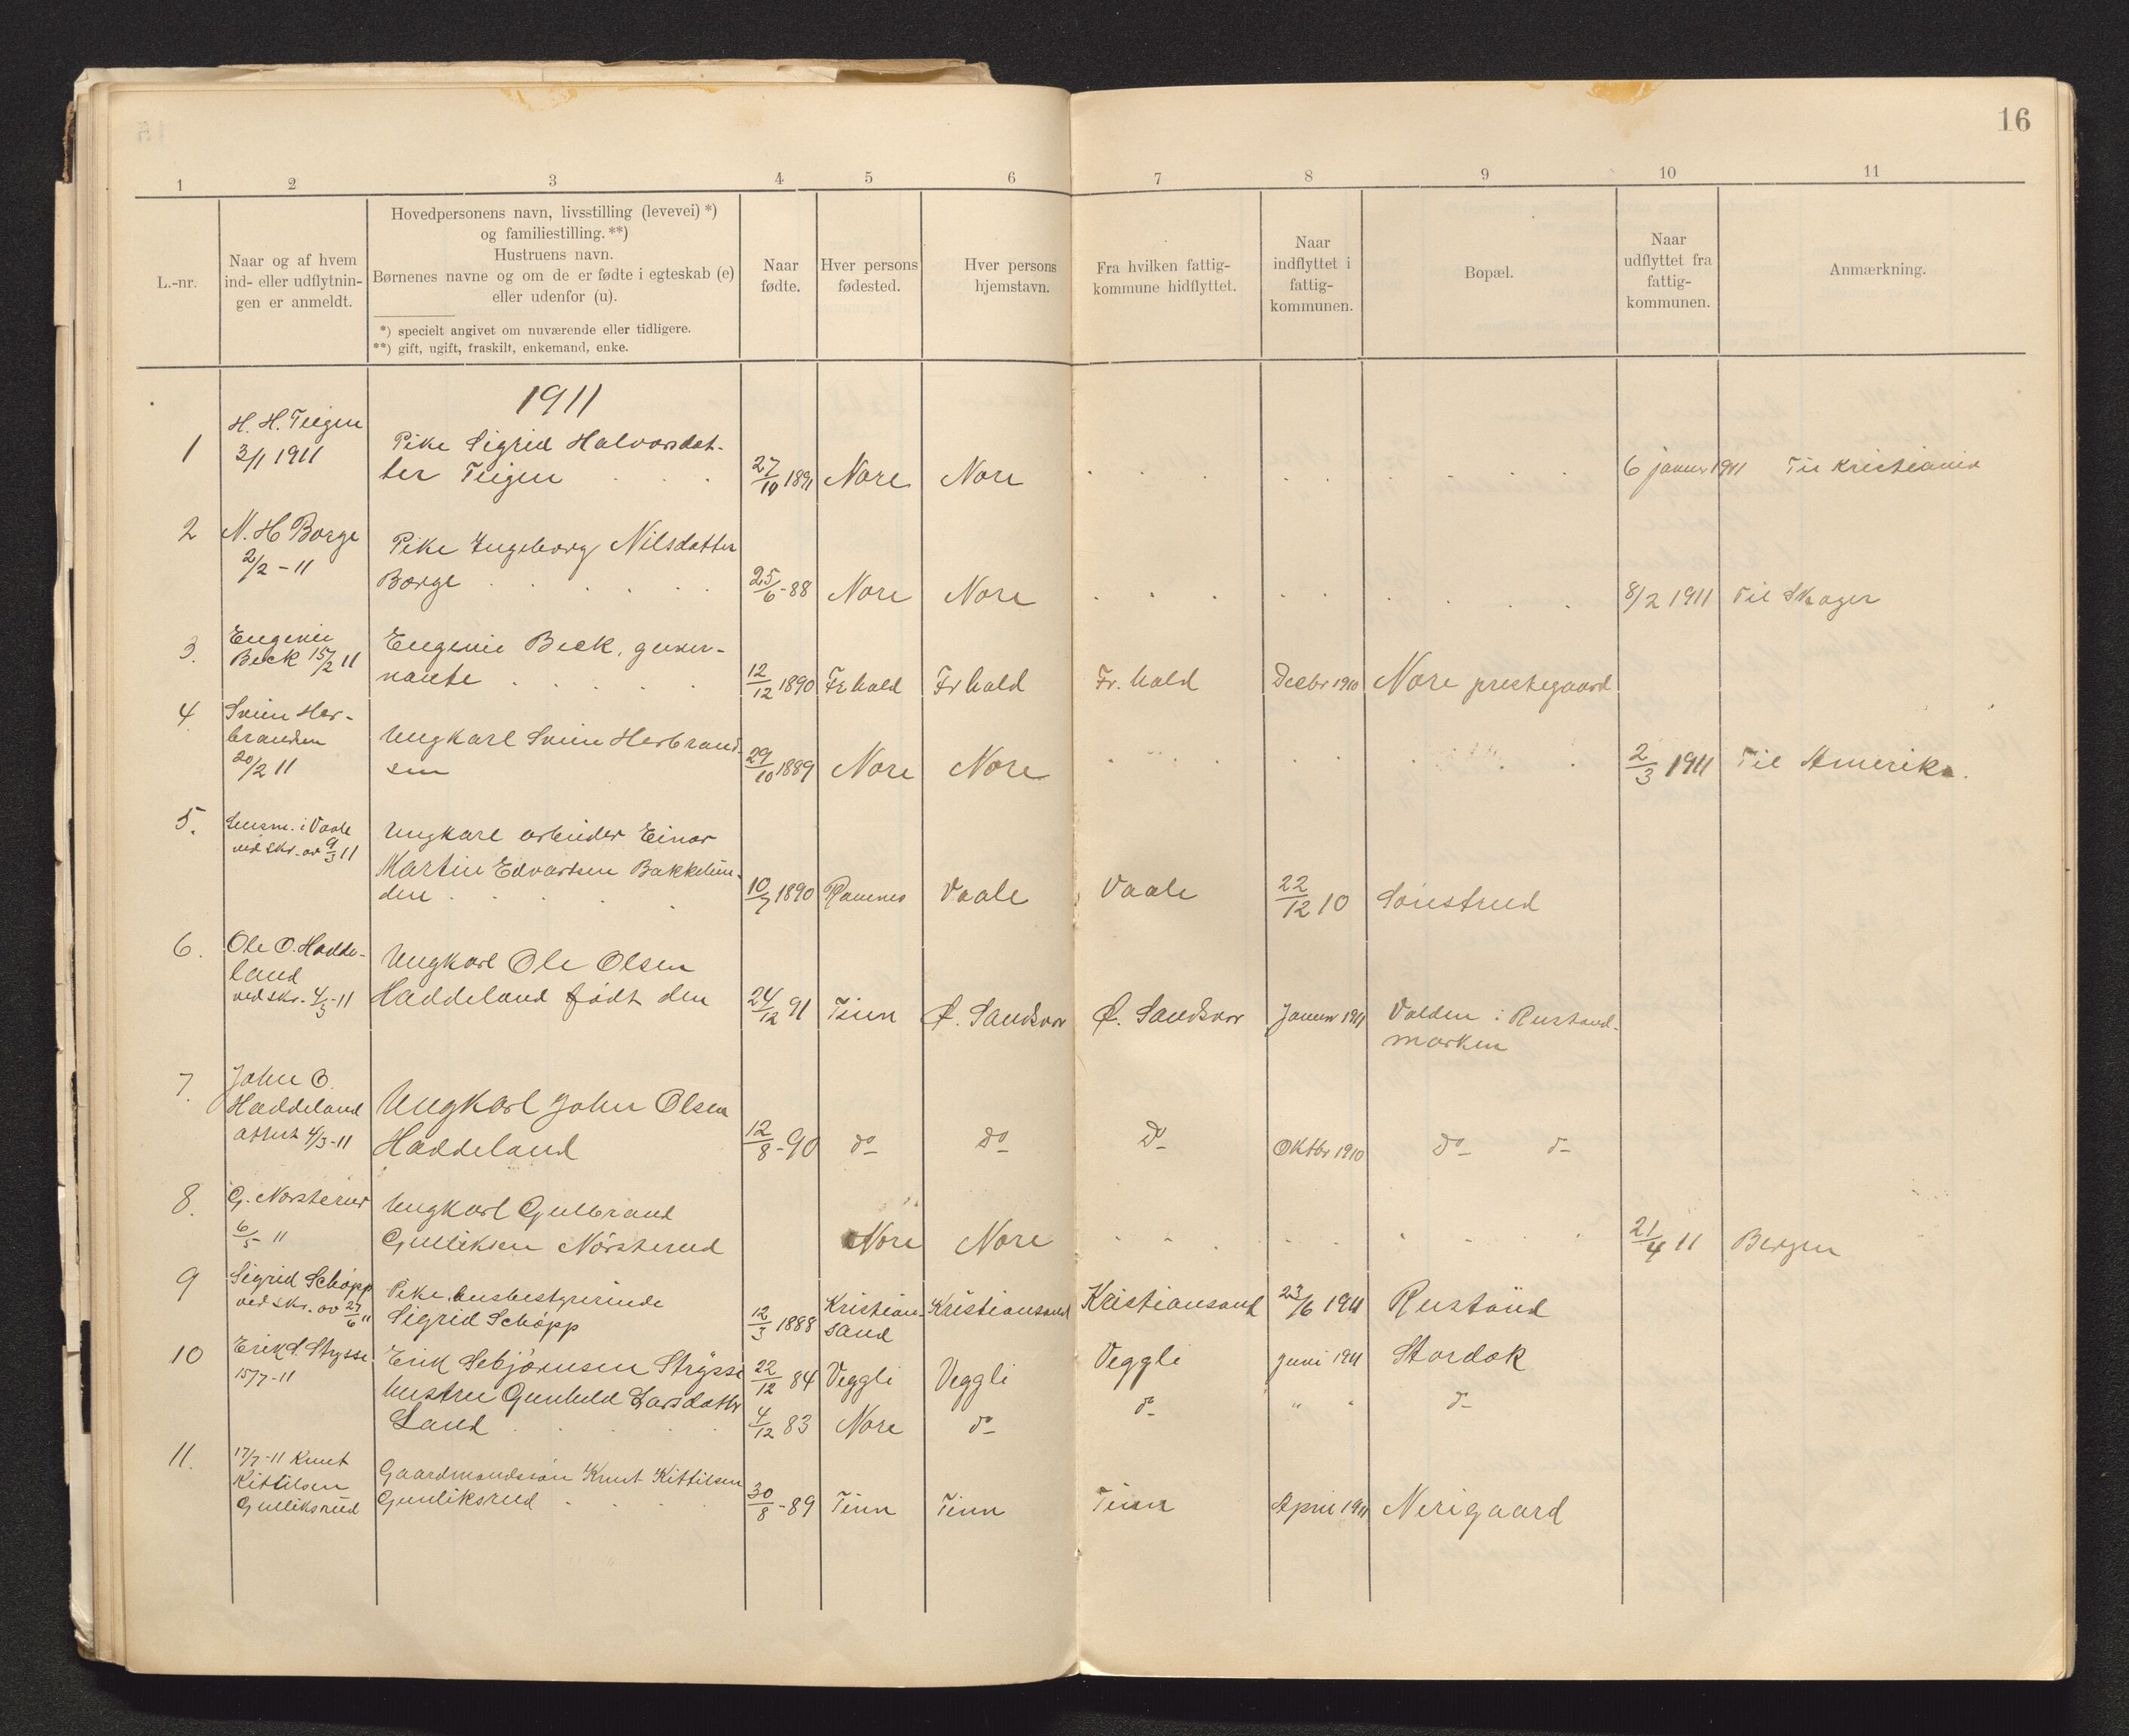 16
1 2 3 4 5 6 7 8 9 10 11
L.-nr.
Naar og af hvem
ind- eller udflytnin-
gen er anmeldt.
Hovedpersonens navn, livsstilling (levevei) *)
og familiestilling. **)
Hustruens navn.
Børnenes navne og om de er fødte i egteskab (e)
eller udenfor (u).
*) specielt angivet om nuværende eller tidligere.
**) gift, ugift, fraskilt, enkemand, enke.
Naar
fødte.
Hver persons
fødested.
Hver persons
hjemstavn.
Fra hvilken fattig-
kommune hidflyttet.
Naar
indflyttet i
fattig-
kommunen.
Bopæl.
Naar
udflyttet fra
fattig-
kommunen.
Anmærkning.
1911
H. H. Teigen
1 3/1 1911 Pike Sigrid Halvorsdat-
ter Teigen 27/10 1891 Nore Nore 6 januar 1911 Til Kristiania
2 N. H Borge
2/2 - 11 Pike Ingeborg Nilsdatter
Borge 25/6 - 88 Nore Nore 8/2 1911 Til Skoger
3. Eugenie
Beck 15/2 11 Eugenie Beck, guver-
nante 12/12 1890 Fr hald Fr hald Fr. hald Decbr 1910 Nore prestegaard
4. Svein Her-
brandsen
20/2 11 Ungkarl Svein Herbrand-
sen 29/10 1889 Nore Nore 2/3 1911 Til Amerika.
5. Lensm. i Vaale
ved skr. av 9/3 11 Ungkarl arbeider Einar
Martin Edvardsen Bakkelun-
den 10/7 1890 Ramnes Vaale Vaale 22/12 10 Sønstrud
6. Ole O. Hadde-
land
ved skr. 4/3 - 11 Ungkarl Ole Olsen
Haddeland født den 24/12 91 Tinn Ø. Sandsvær Ø. Sandsvær Januar 1911 Valden i Rustand-
marken
7. John O.
Haddeland
attest 4/3 - 11 Ungkarl John Olsen
Haddeland 12/8 - 90 do do Do Oktbr 1910 Do d-
8. G. Nørsterud
6/5 11 Ungkarl Gulbrand
Gulliksen Nørsterud Nore Nore 21/4 11 Bergen
9 Sigrid Schöpp
ved skr. av 27/6 " Pike, husbestyrerinde
Sigrid Schöpp 12/3 1888 Kristian-
sand Kristiansand Kristiansand 23/6 1911 Rustand
10 Erik S. Strysse
15/7 - 11 Erik Sebjørnsen Strysse 22/12 84 Veggli Veggli Veggli Juni 1911 Stordok
hustru Gunhild Larsdatter
Land 4/12 83 Nore do d- " " d-
11. 17/7 - 11 Knut
Kittilsen
Gulliksrud Gaardmandssøn Knut Kittilsen
Gunliksrud 30/8 - 89 Tinn Tinn Tinn April 1911 Nerigaard